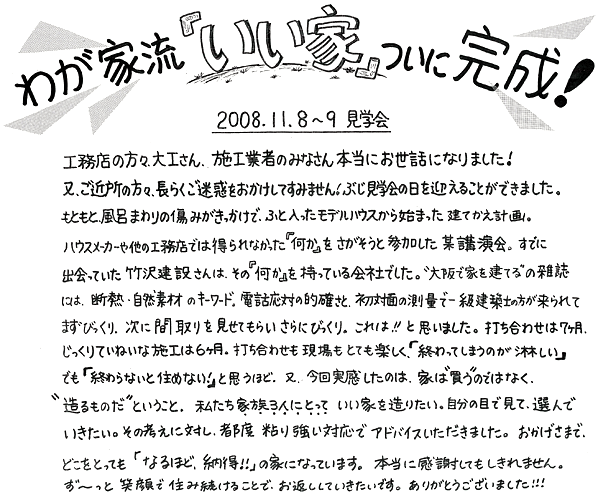 わが家流『いい家』ついに完成!
2008.11.8~9 見学会
工務店の方々、大工さん、施工業者のみなさん本当にお世話になりました!
又、ご近所の方々、長らくご迷惑をおかけしてすみません!ぶじ見学会の日を迎えることができました。
もともと、風呂まわりの傷みがきっかけで、ふと入ったモデルハウスから始まった 建てかえ計画。
ハウスメーカーや他の工務店では得られなかった『何か』を さがそうと参加した 某講演会。すでに
出会っていた 竹沢建設さんは、その『何か』を 持っている会社でした。"大阪で家を建てる"の雑誌
には、断熱・自然素材 のキーワード。電話応対の的確さと、初対面の測量で一級建築士の方が来られて
まずびっくり、次に 間取りを見せてもらい さらにびっくり。これは!! と思いました。打ち合わせは7ヶ月、
じっくりていねいな施工は6ヶ月。打ち合わせも 現場も とても楽しく、「終わってしまうのが淋しい」
でも「終わらないと住めない!」と思うほど。又、今回実感したのは、家は"買う"のではなく、
"造るものだ"ということ。私たち家族3人にとって いい家を造りたい。自分の目で見て、選んで
いきたい。その考えに対し、都度 粘り強い対応で アドバイスいただきました。おかげさまで、
どこをとっても「なるほど、納得!!」の家になっています。本当に感謝してもしきれません。
ず~っと 笑顔で住み続けることで、お返ししていきたいです。ありがとうございました!!!